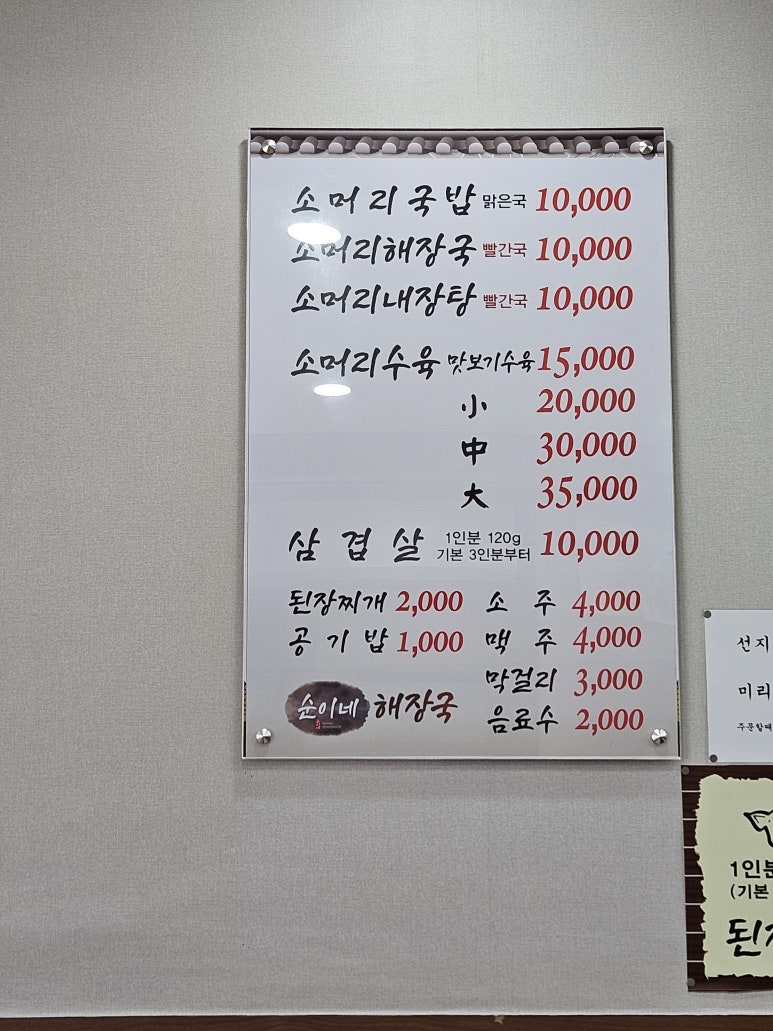 소머리국밥 맑은국 10,000
소머리해장국 빨간국 10,000
소머리내장탕 빨간국 10,000
소머리수육 맛보기수육 15,000
小 20,000
中 30,000
大 35,000
삼 겹 살 1인분 120g 기본 3인분부터 10,000
된장찌개 2,000 소 주 4,000
공 기 밥 1,000 맥 주 4,000
막걸리 3,000
순이네 해장국 음료수 2,000
선지
미리
주문할때
1인분
(기본
된